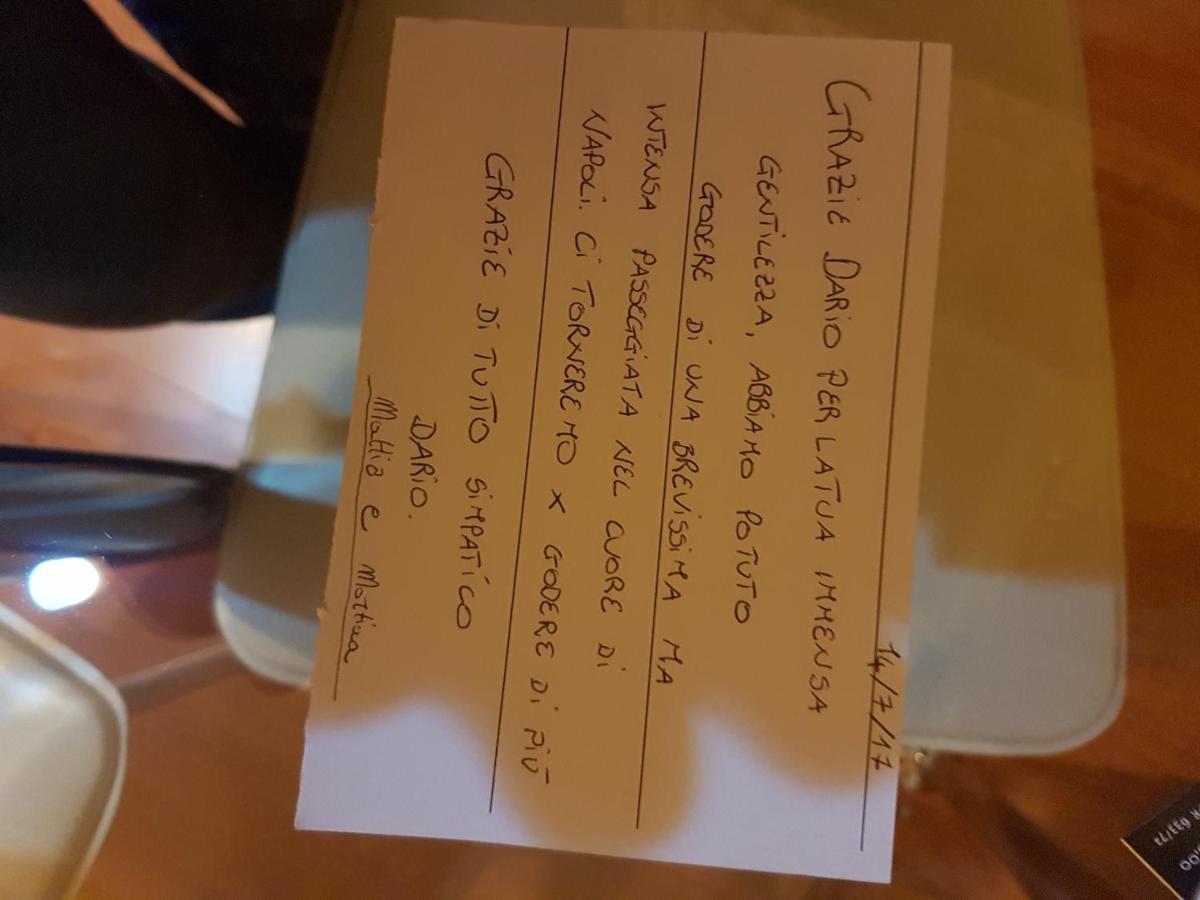 14/7/17
GRAZIE DARIO PER LA TUA IMMENSA
GENTILEZZA, ABBIAMO POTUTO
GODERE DI UNA BREVISSIMA MA
INTENSA PASSEGGIATA NEL CUORE DI
NAPOLI. CI TORNEREMO X GODERE DI PIÙ
GRAZIE DI TUTTO SIMPATICO
DARIO.
Mattia e Martina
R 633/72